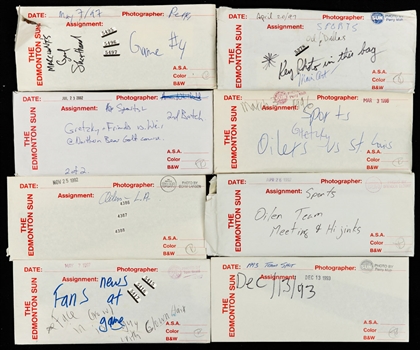 DATE: May 7/97 Photographer: Perry
THE EDMONTON SUN
Assignment:
Game #4
MARCHANTS
Goal
Shorthand
A.S.A.
Color
B&W
DATE: April 20/97 Photographer:
THE EDMONTON SUN
Assignment: SPORTS
Oil, Dallas
Key Photo in this bag
A.S.A.
Color
B&W
DATE: Photographer:
THE EDMONTON SUN
Assignment: Sports
2nd Batch
Gretzky - Friends
@ Northern Bear Golf course
2 of 2
A.S.A.
Color
B&W
DATE: Photographer:
THE EDMONTON SUN
Assignment: Sports
Gretzky
Oilers vs St Louis
A.S.A.
Color
B&W
DATE: Photographer:
NOV 25 1992
THE EDMONTON SUN
Assignment: Oilers - L.A.
4386
4387
4388
A.S.A.
Color
B&W
DATE: Photographer:
THE EDMONTON SUN
Assignment: Sports
Oiler Team
Meeting & Hijinks
A.S.A.
Color
B&W
DATE: Photographer:
THE EDMONTON SUN
Assignment: news
Fans at
game
Face
in
with Clown Hair
A.S.A.
Color
B&W
DATE: 1993 Photographer:
DEC 13 1993
THE EDMONTON SUN
Assignment:
Dec/13/93
A.S.A.
Color
B&W